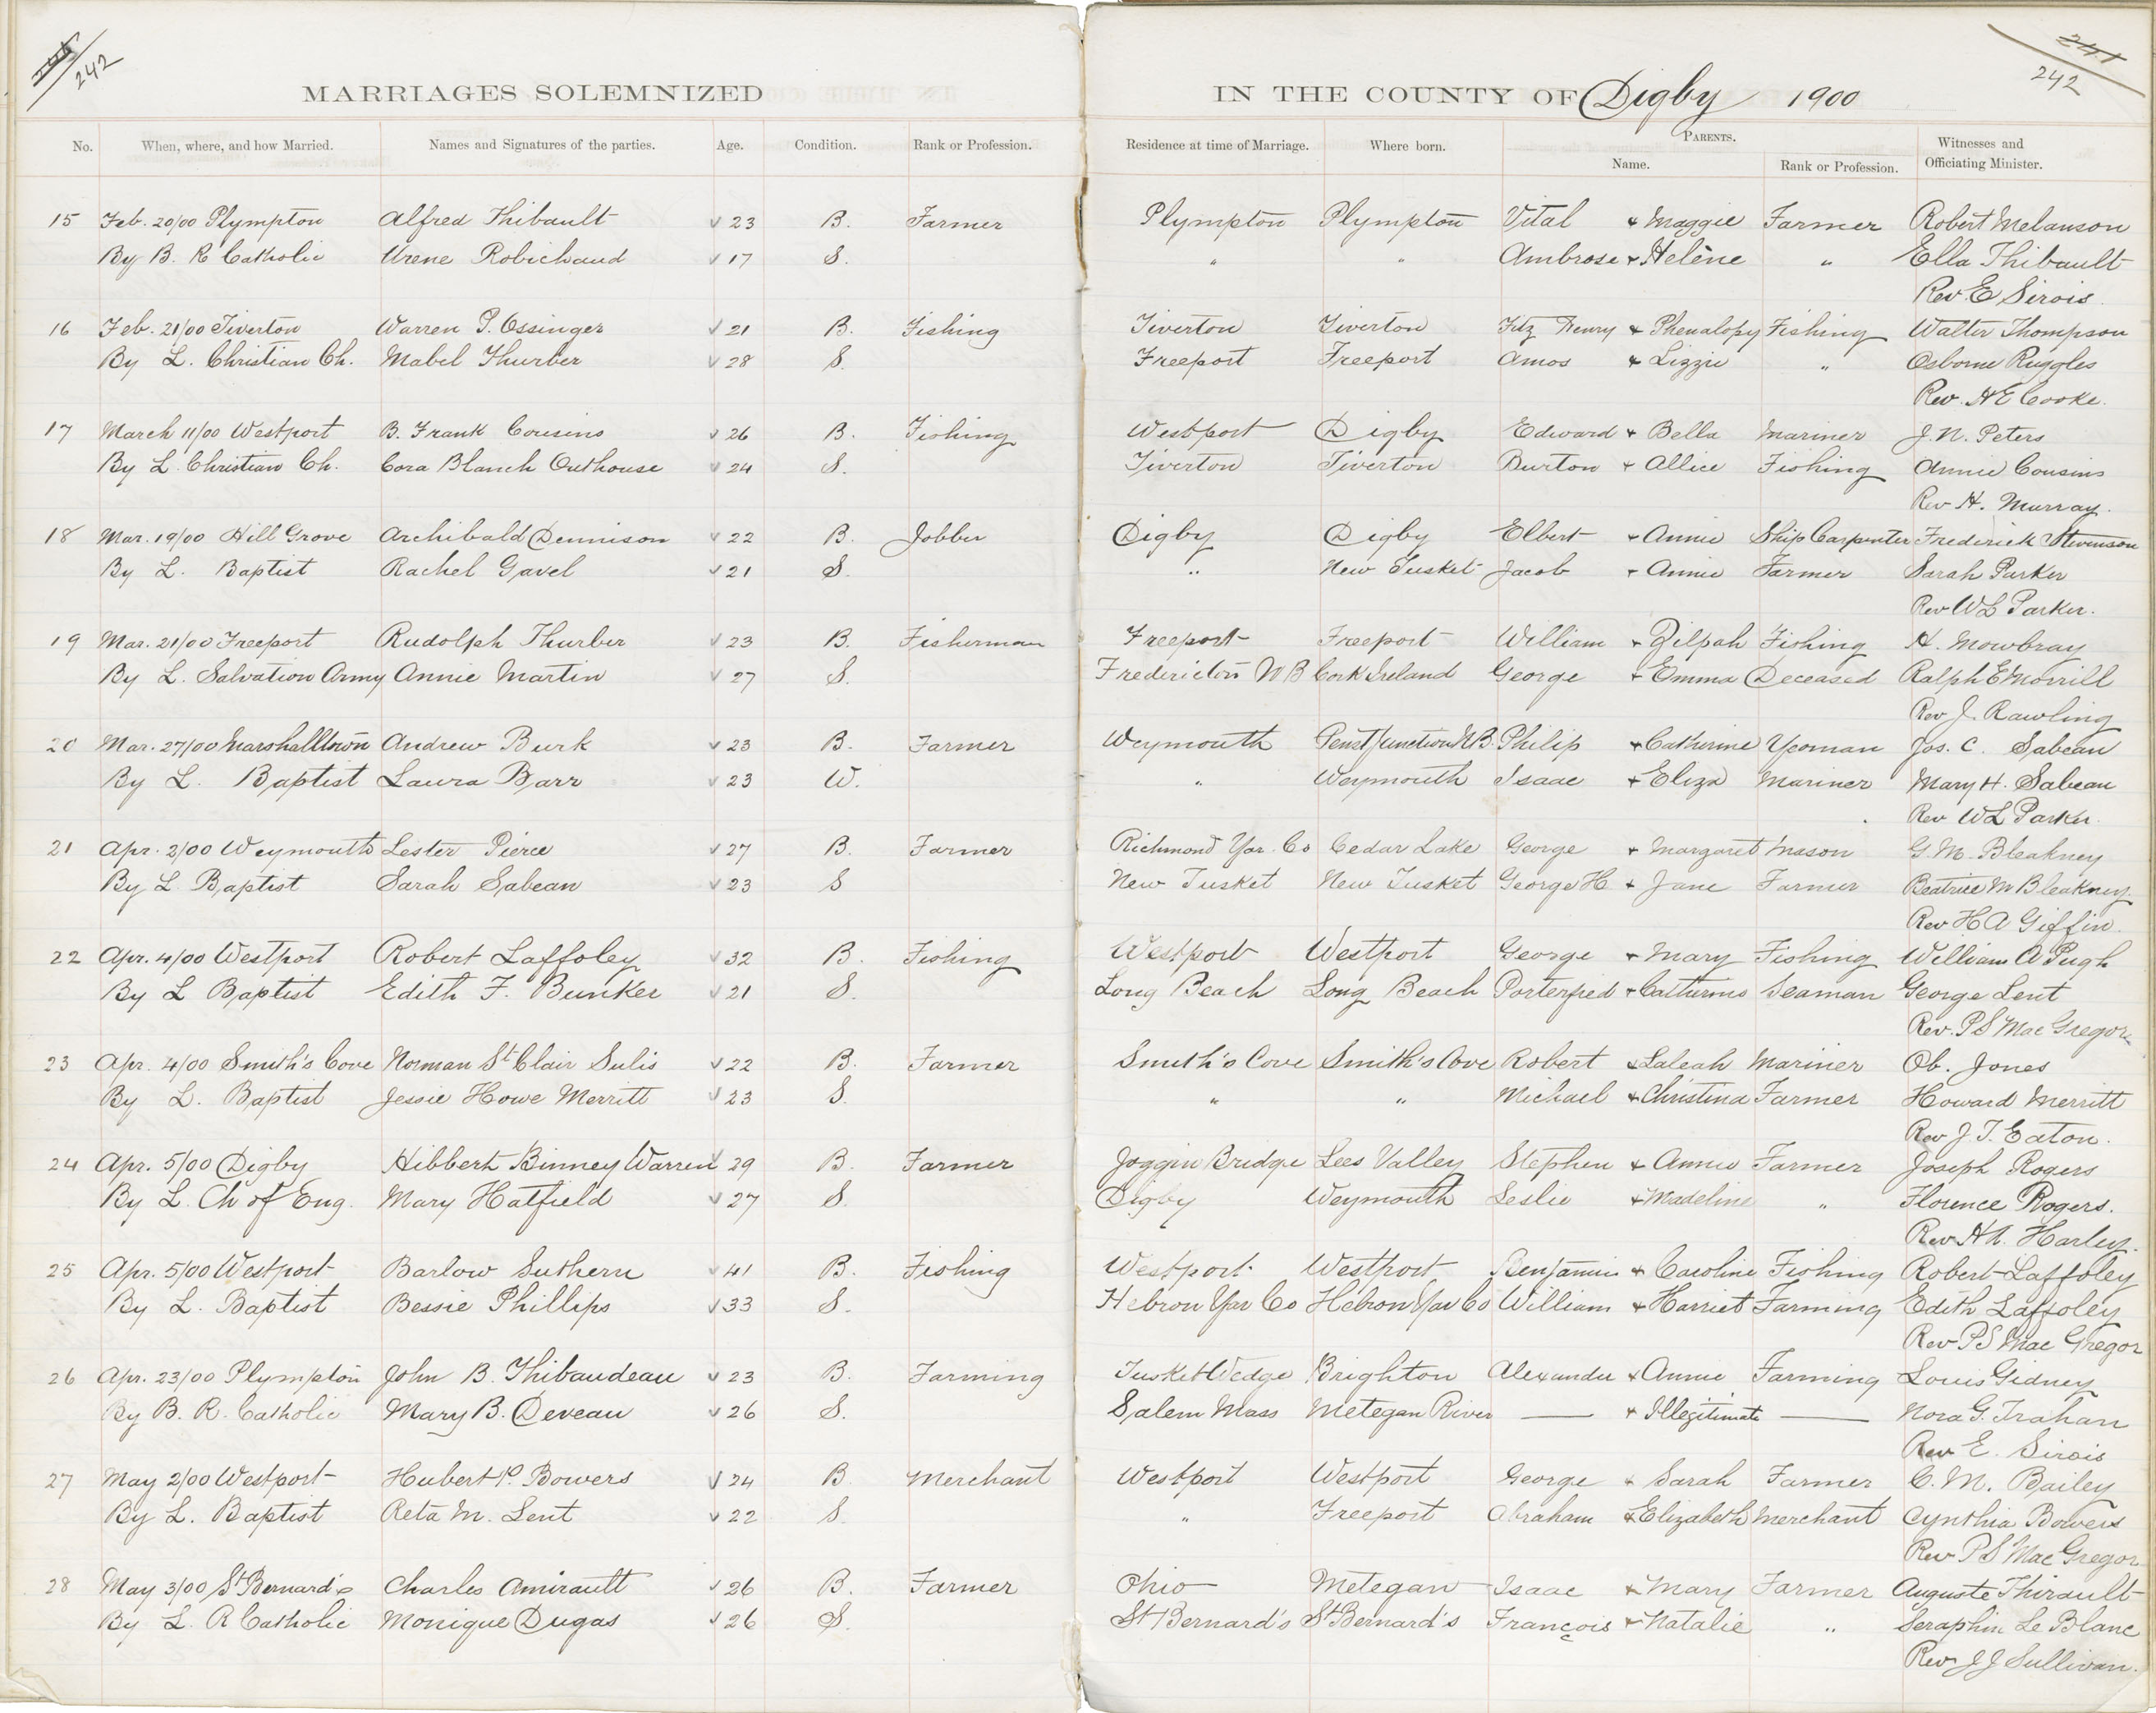 242
241
242
MARRIAGES SOLEMNIZED IN THE COUNTY OF Digby 1900
No. When, where, and how Married. Names and Signatures of the parties. Age. Condition. Rank or Profession. Residence at time of Marriage. Where born. PARENTS. Name. Rank or Profession. Witnesses and Officiating Minister.
15 Feb. 20/00 Plympton Alfred Thibault √ 23 B. Farmer Plympton Plympton Vital & Maggie Farmer Robert Melanson
By B. R Catholic Urene Robichaud √ 17 S. " " Ambrose & Helène " Ella Thibault
Rev. E Sirois.
16 Feb. 21/00 Tiverton Warren P. Ossinger √ 21 B. Fishing Tiverton Tiverton Fitz Henry & Phenalopy Fishing Walter Thompson
By L. Christian Ch. Mabel Thurber √ 28 S. Freeport Freeport Amos & Lizzie " Osborne Ruggles
Rev. H E Cooke.
17 March 11/00 Westport B. Frank Cousins √ 26 B. Fishing Westport Digby Edward & Bella Mariner J. N. Peters
By L. Christian Ch. Cora Blanch Outhouse √ 24 S. Tiverton Tiverton Burton & Allice Fishing Annie Cousins
Rev H. Murray.
18 Mar. 19/00 Hill Grove Archibald Dennison √ 22 B. Jobber Digby Digby Elbert & Annie Ship Carpenter Frederick Stevenson
By L. Baptist Rachel Gavel √ 21 S. " New Tusket Jacob & Annie Farmer Sarah Parker
Rev W L Parker.
19 Mar. 21/00 Freeport Rudolph Thurber √ 23 B. Fisherman Freeport Freeport William & Zilpah Fishing H. Mowbray
By L. Salvation Army Annie Martin √ 27 S. Fredericton N B Cork Ireland George & Emma Deceased Ralph E Morrill
Rev J. Rawling
20 Mar. 27/00 Marshalltown Andrew Burk √ 23 B. Farmer Weymouth Junction N B. Philip & Catherine Yeoman Jos. C. Sabean
By L. Baptist Laura Barr √ 23 W. " Weymouth Isaac & Eliza Mariner Mary H. Sabean
Rev W L Parker.
21 Apr. 2/00 Weymouth Lester Pierce √ 27 B. Farmer Richmond Yar. Co Cedar Lake George & Margaret Mason G. M. Bleakney
By L Baptist Sarah Sabean √ 23 S New Tusket New Tusket George H & Jane Farmer Beatrice M Bleakney.
Rev H A Giffin.
22 Apr. 4/00 Westport Robert Laffoley √ 32 B. Fishing Westport Westport George & Mary Fishing William A Pugh
By L Baptist Edith F. Bunker √ 21 S. Long Beach Long Beach Porterfied & Catherine Seaman George Lent
Rev. P S MacGregor
23 Apr. 4/00 Smith's Cove Norman St Clair Sulis √ 22 B. Farmer Smith's Cove Smith's Cove Robert & Saleah Mariner Ob. Jones
By L. Baptist Jessie Howe Merritt √ 23 S. " " Michael & Christina Farmer Howard Merritt
Rev J. T. Eaton.
24 Apr. 5/00 Digby Hibbert Binney Warren √ 29 B. Farmer Joggin Bridge Lees Valley Stephen & Annie Farmer Joseph Rogers
By L. Ch of Eng. Mary Hatfield √ 27 S. Digby Weymouth Leslie & Madeline " Florence Rogers.
Rev H A. Harley.
25 Apr. 5/00 Westport Barlow Suthern √ 41 B. Fishing Westport Westport Benjamin & Caroline Fishing Robert Laffoley
By L. Baptist Bessie Phillips √ 33 S. Hebron Yar Co Hebron Yar Co William & Harriet Farming Edith Laffoley
Rev P S MacGregor
26 Apr. 23/00 Plympton John B. Thibaudeau √ 23 B. Farming Tusket Wedge Brighton Alexander & Annie Farming Louis Gidney
By B. R. Catholic Mary B. Deveau √ 26 S. Salem Mass Metegan River — & Illegitimate — Nora G. Trahan
Rev E. Sirois
27 May 2/00 Westport Hubert P. Bowers √ 24 B. Merchant Westport Westport George & Sarah Farmer C. M. Bailey
By L. Baptist Reta M. Lent √ 22 S. " Freeport Abraham & Elizabeth Merchant Cynthia Bowers
Rev P S MacGregor
28 May 3/00 St Bernard's Charles Amirault √ 26 B. Farmer Ohio Metegan Isaac & Mary Farmer Auguste Thirault
By L. R Catholic Monique Dugas √ 26 S. St Bernard's St Bernard's François & Natalie " Seraphin Le Blanc
Rev J J Sullivan.